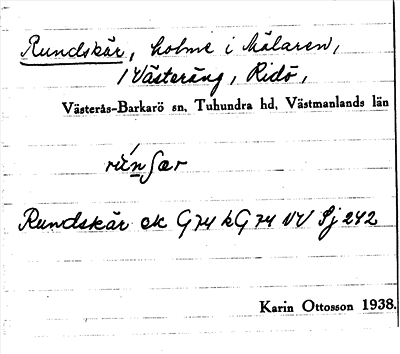 Rundskär, holme i Mälaren,
1 Västeräng, Ridö,
Västerås-Barkarö sn, Tuhundra hd, Västmanlands län
rúnʃær
Rundskär ek G 74 kG 74 NV Sj 242
Karin Ottosson 1938.